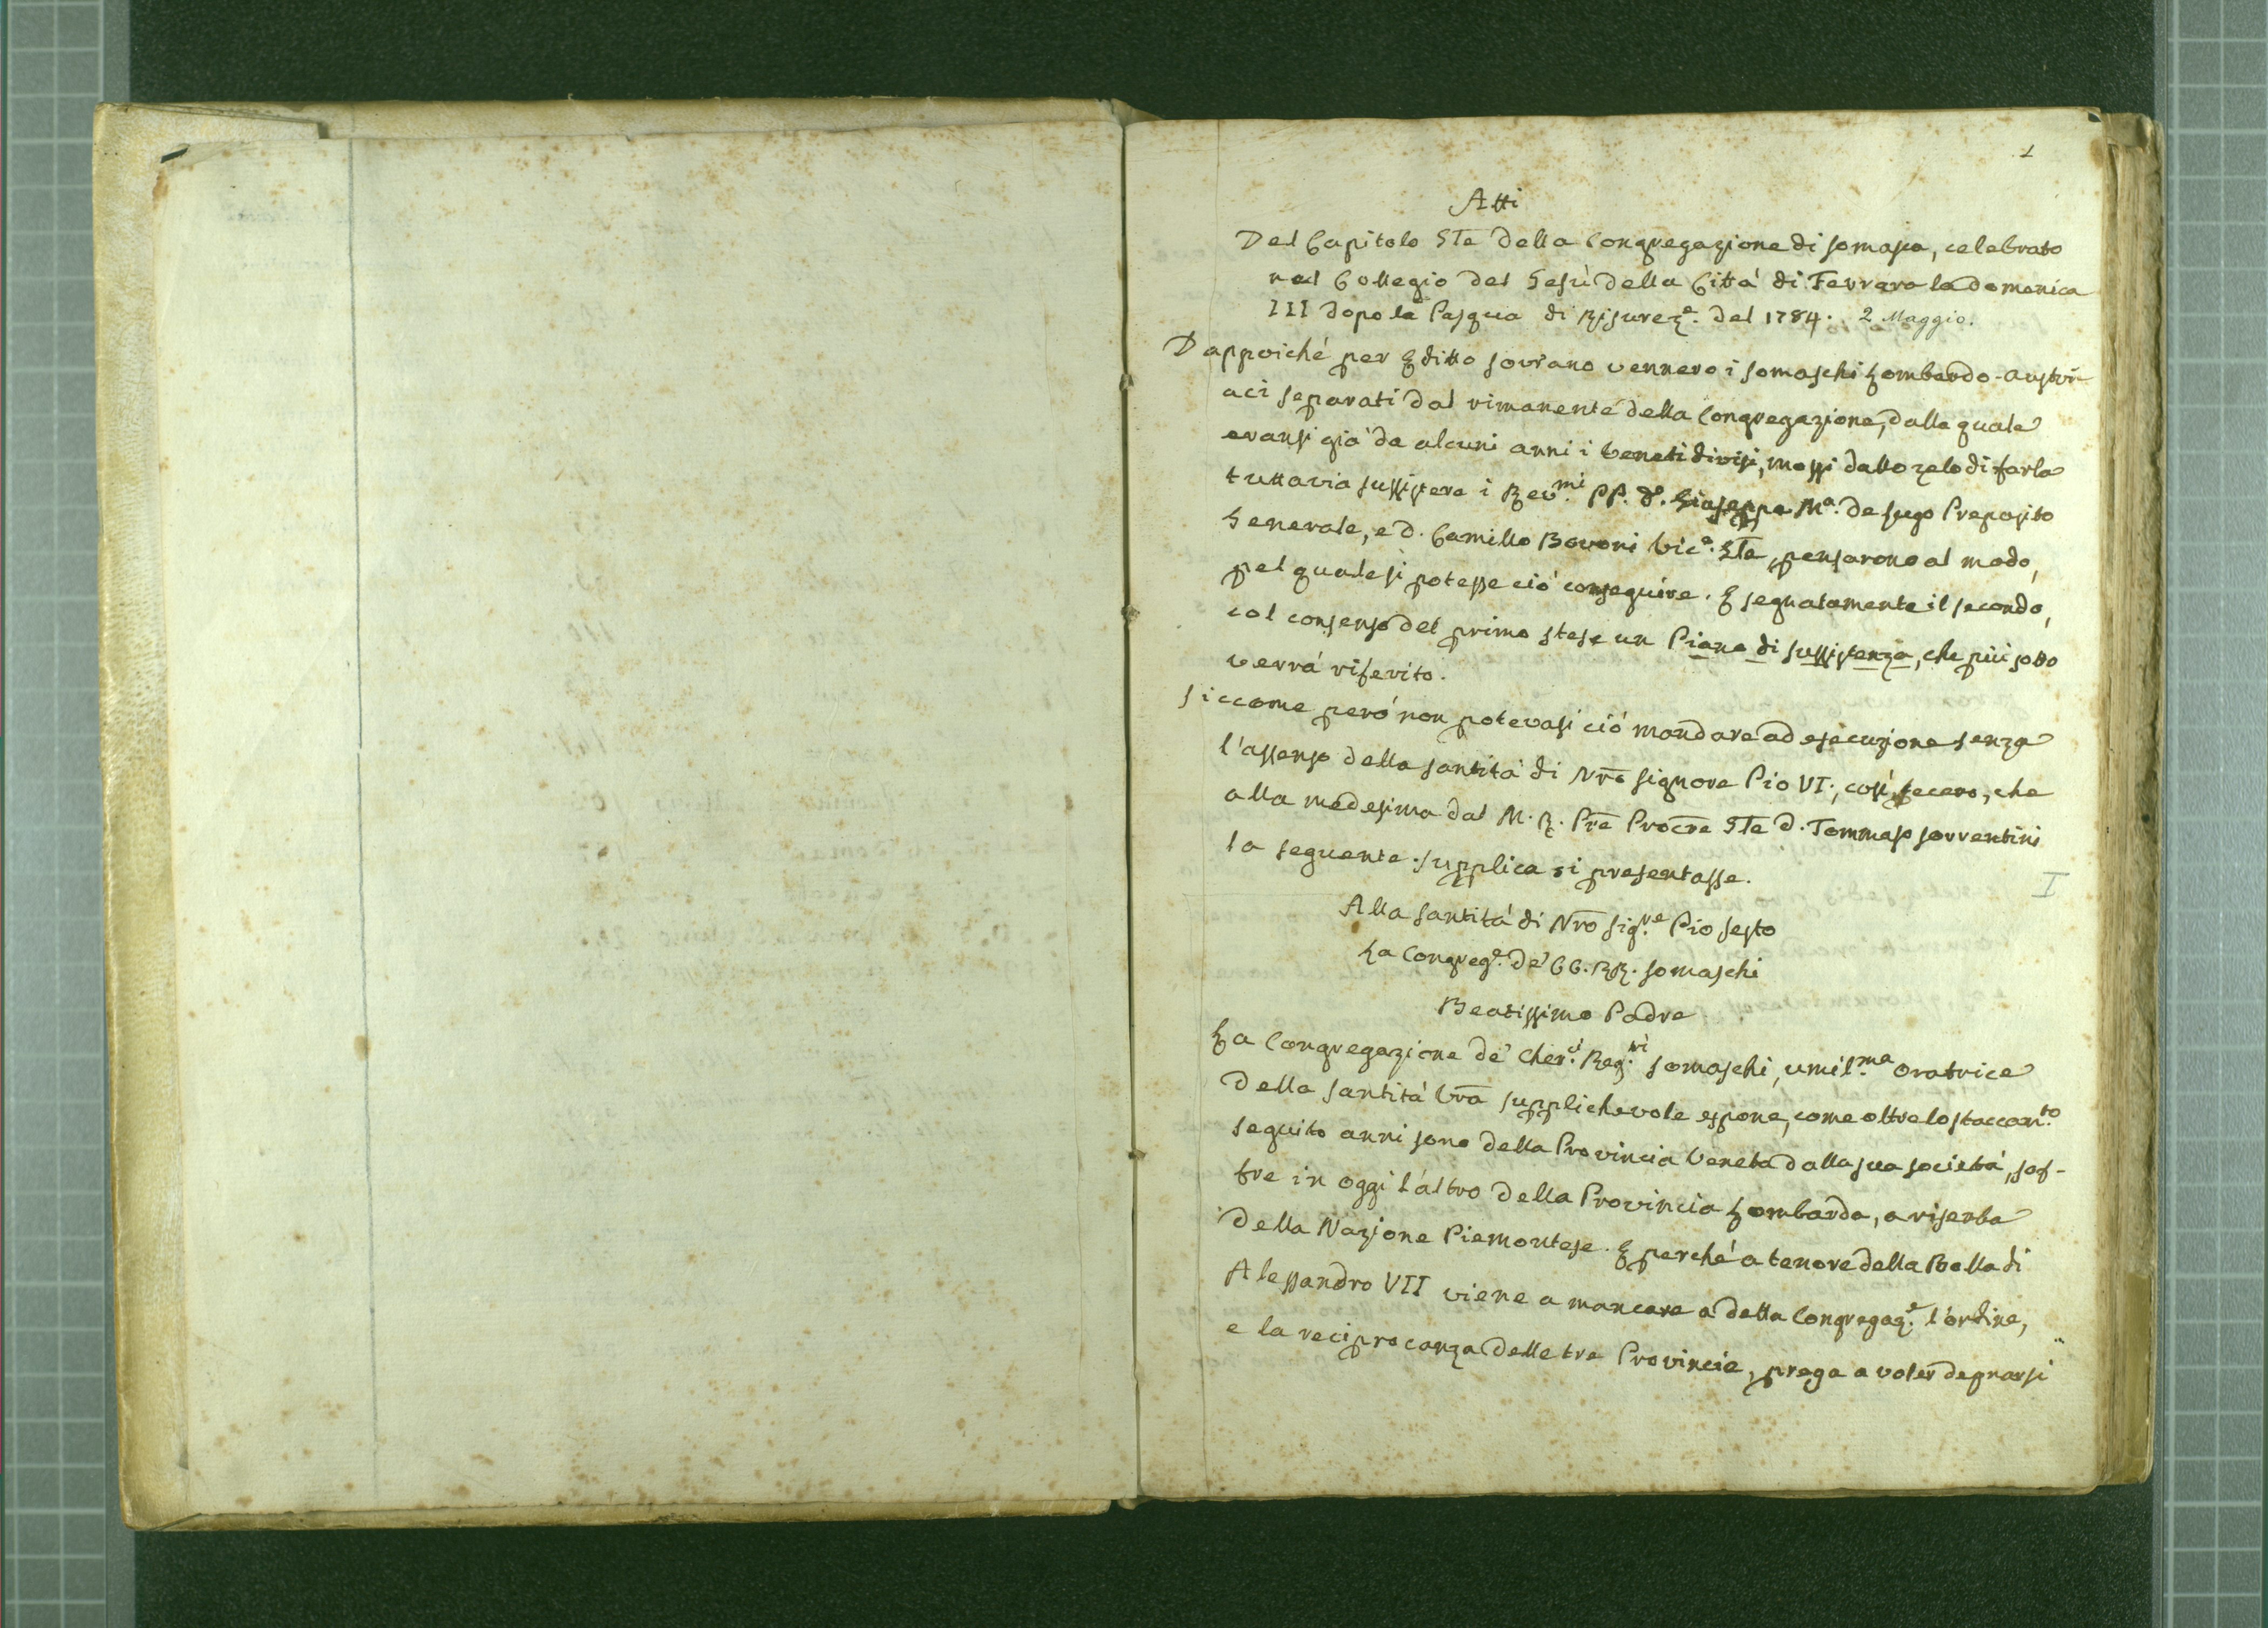 1
Atti
Del Capitolo Gle della Congregazione di Somasca, celebrato
nel Collegio del Gesù della Città di Ferrara la domenica
III dopo la Pasqua di Risurez.e del 1784. 2 Maggio.
Dappoiché per Editto sovrano vennero i Somaschi Lombardo-austri-
aci separati dal rimanente della Congregazione, dalla quale
eransi già da alcuni anni i Veneti divisi, mossi dallo zelo di farla
tuttavia sussistere i Rev.mi PP. D. Giuseppe M.a de Lugo Preposito
Generale, e D. Camillo Bovoni Vic.o Gle, pensarono al modo,
pel quale si potesse ciò conseguire. E segnatamente il secondo,
col consenso del primo stese un Piano di sussistenza, che più sotto
verrà riferito.
Siccome però non potevasi ciò mandare ad esecuzione senza
l'assenso della Santità di Nro Signore Pio VI., così fecero, che
alla medesima dal M. R. Pre Procre Gle D. Tommaso Sorrentini
la seguente supplica si presentasse.
I
Alla Santità di Nro Sig.re Pio Sesto
La Congreg.e de' CC. RR. Somaschi
Beatissimo Padre
La Congregazione de' Cher.ci Reg.ri Somaschi, umil.ma oratrice
della Santità Vra supplichevole espone, come oltre lo staccam.to
seguito anni sono della Provincia Veneta dalla sua società, sof-
fre in oggi l'altro della Provincia Lombarda, a riserba
della Nazione Piemontese. E perché a tenore della Bolla di
Alessandro VII viene a mancare a detta Congregaz.e l'ordine,
e la reciprocanza delle tre Provincie, prega a voler degnarsi